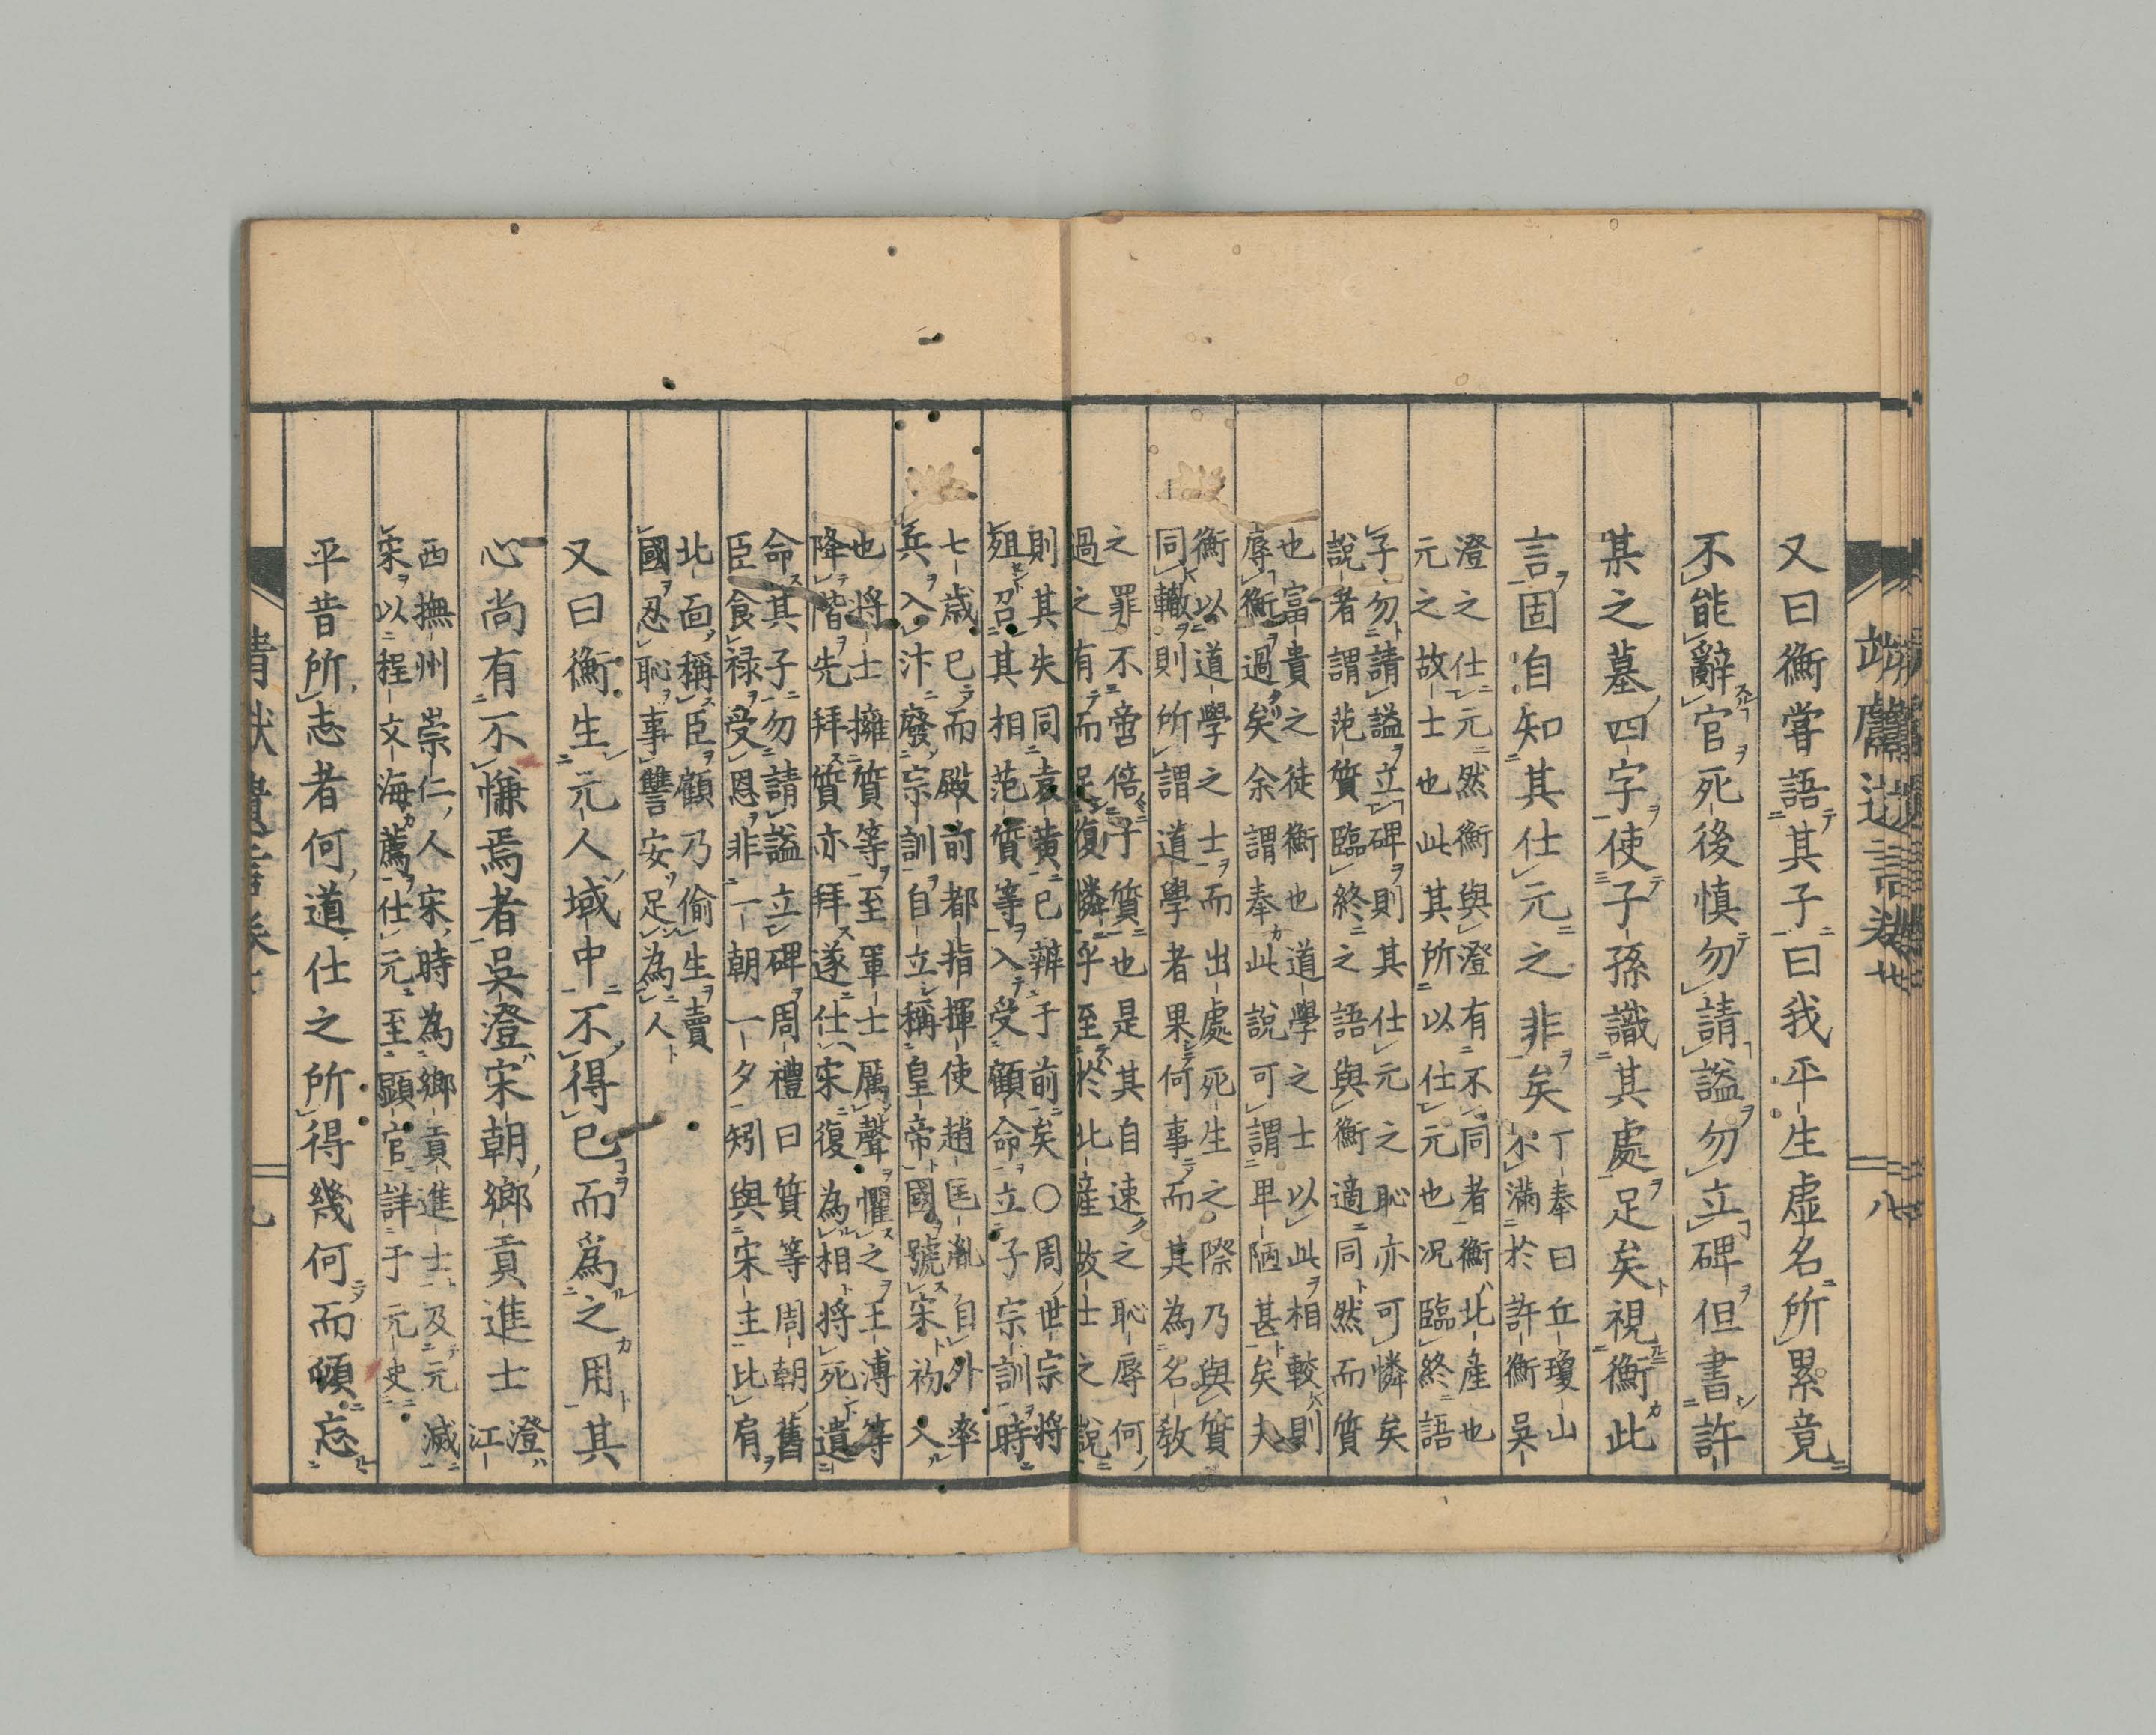 又曰衡嘗語其子曰我平生虛名所累竟
不能辭官死後慎勿請謚勿立碑但書許
某之墓四字使子孫識其處足矣視衡此
言固自知其仕元之非矣丁奉曰丘瓊山
不滿於許衡吳
澄之仕元然衡與澄有不同者衡北産也
元之故士也此其所以仕元也況臨終語
子勿請謚立碑則其仕元之恥亦可憐矣
說者謂范質臨終之語與衡適同然而質
也富貴之徒衡也道學之士以此相較則
辱衡過矣余謂奉此說可謂卑陋甚矣夫
衡以道學之士而出處死生之際乃與質
同轍則所謂道學者果何事而其為名教
之罪不啻倍于質也是其自速之恥辱何
過之有而足復憐乎至於此産故士之說
則其失同袁黄已辨于前矣○周世宗將
殂召其相范質等入受顧命立子宗訓時
七歲已而殿前都指揮使趙匡胤自外率
兵入汴廢宗訓自立稱皇帝國號宋初入
也將士擁質等至軍士厲聲懼之王溥等
降階先拜質亦拜遂仕宋復為相將死遺
命其子勿請謚立碑周禮曰質等周朝舊
臣食禄受恩非一朝一夕矧與宋主比肩
北面稱臣顧乃偷生賣
國忍恥事讐安足為人
又曰衡生元人域中不得已而為之用其
心尚有不慊焉者吳澄宋朝鄉貢進士澄
江
西撫州崇仁人宋時為鄉貢進士及元滅
宋以程文海薦仕元至顯官詳于元史
平昔所志者何道仕之所得幾何而頌忘